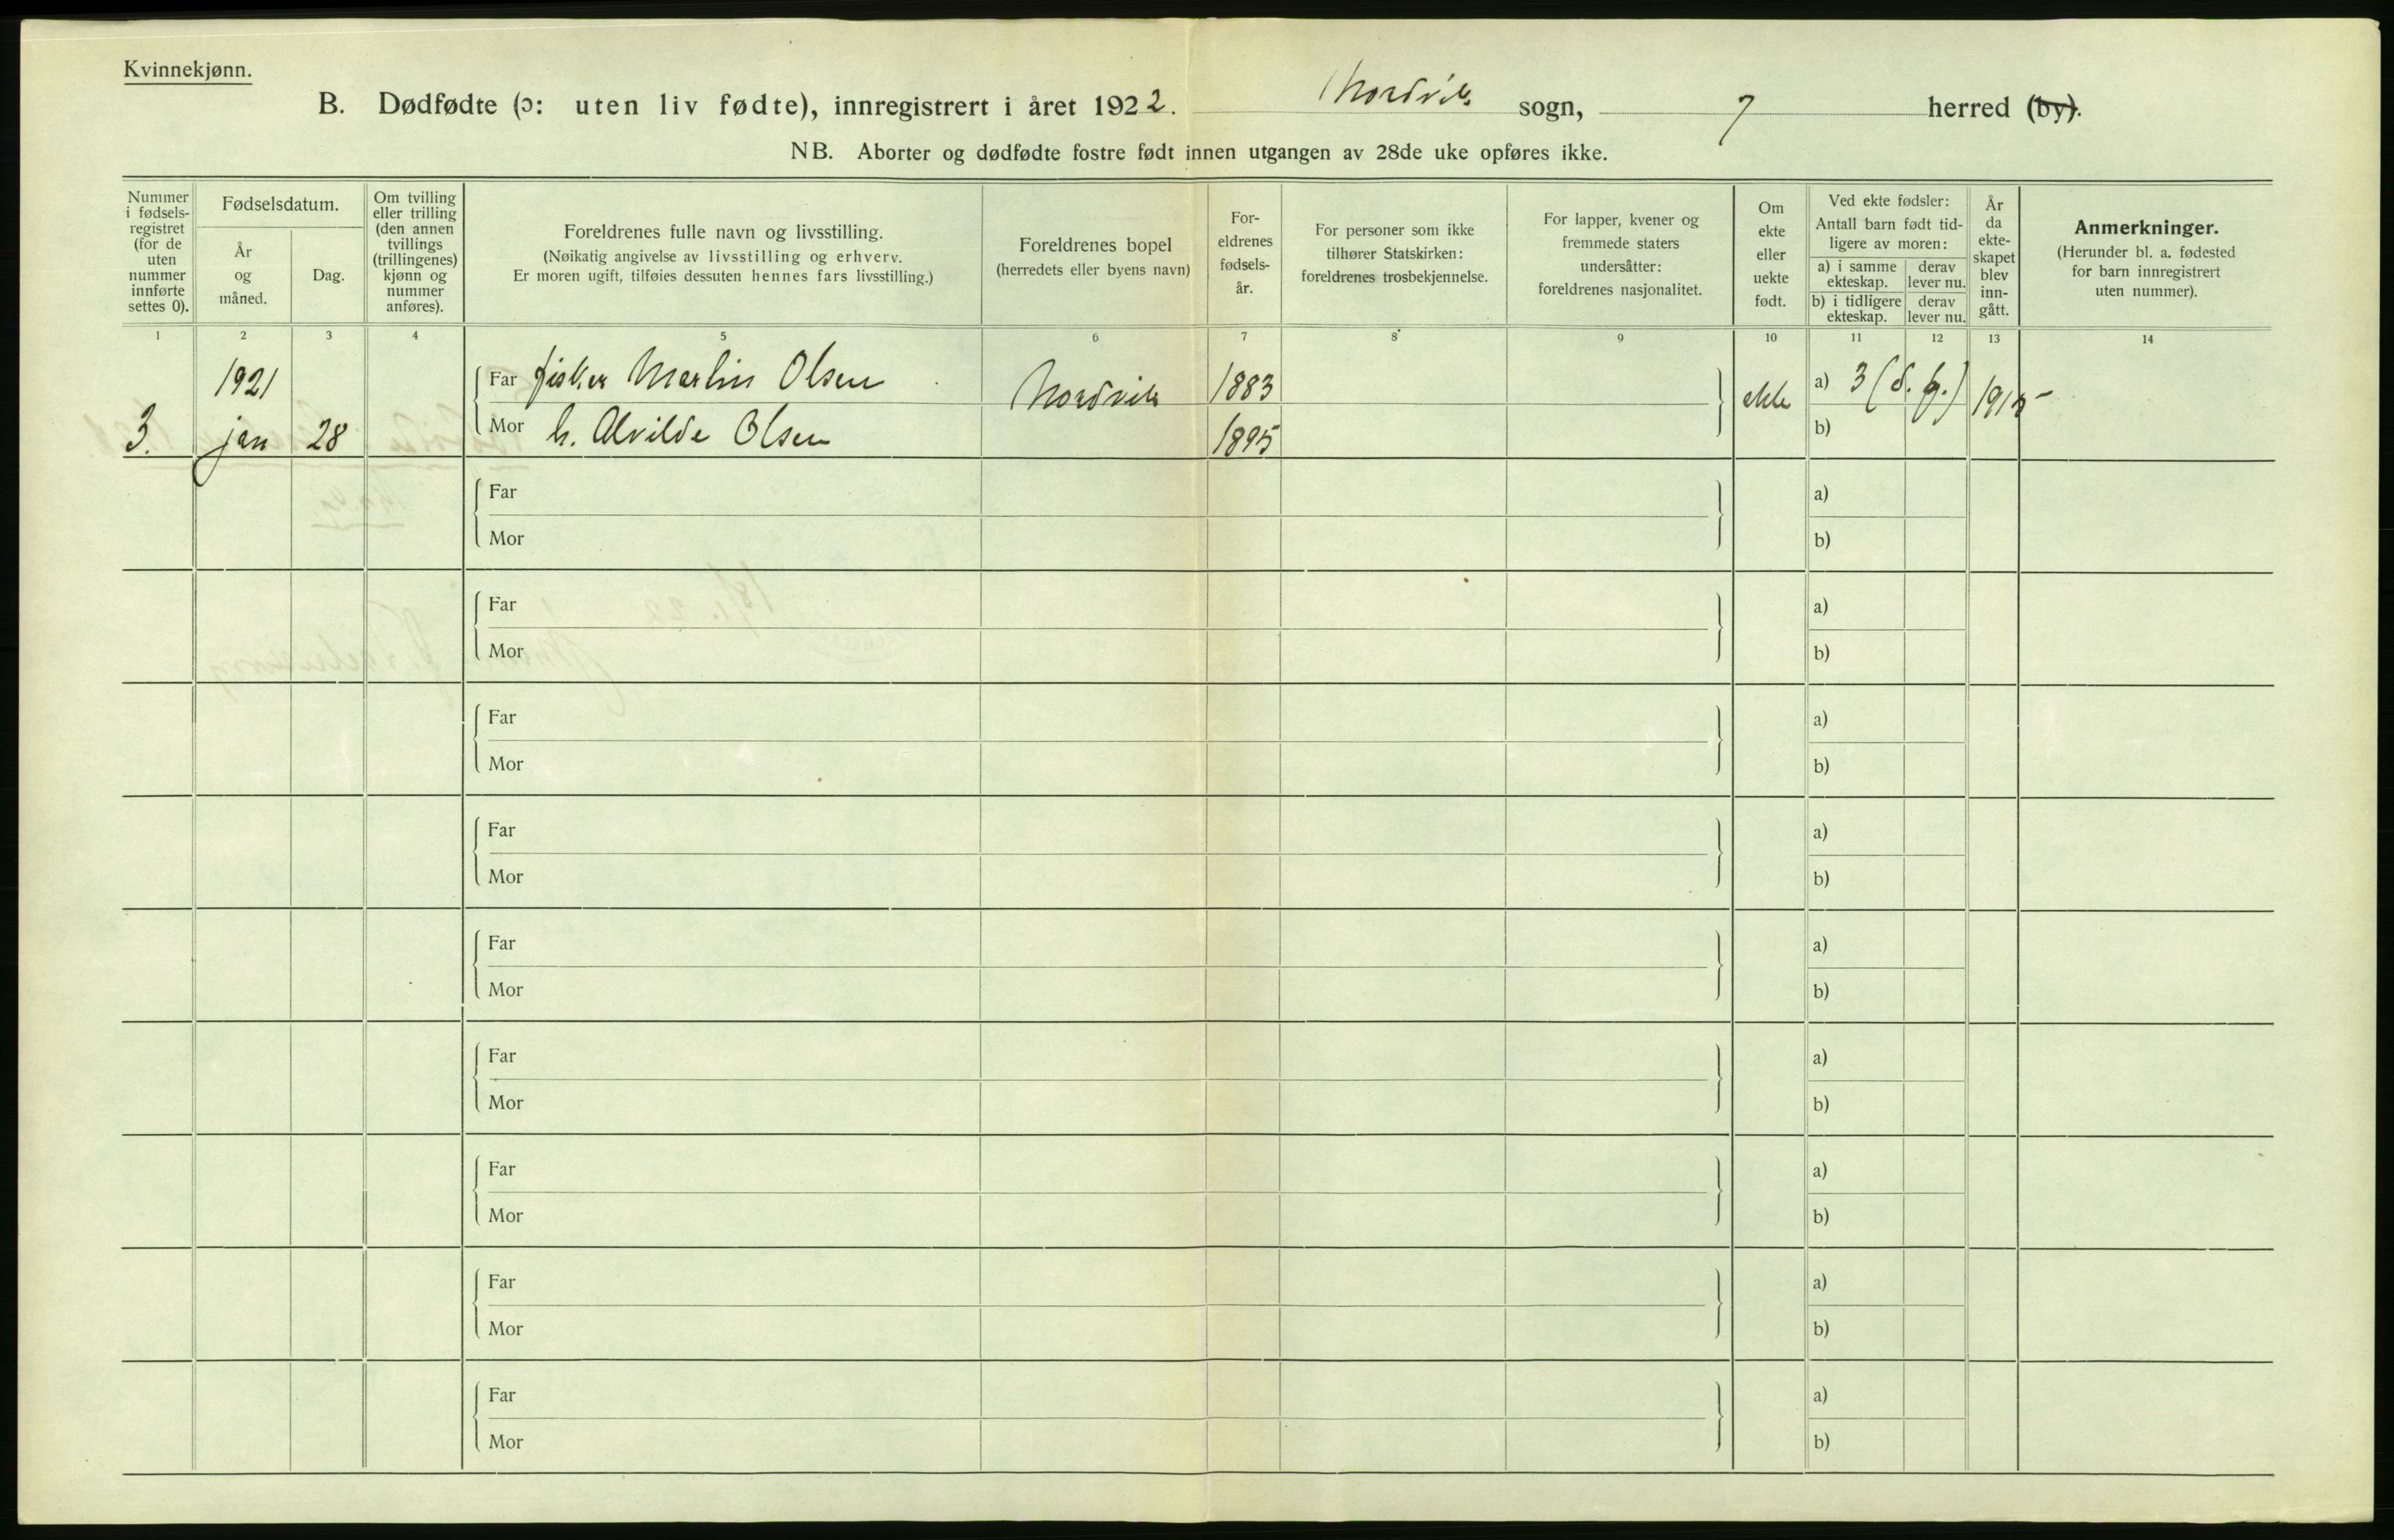 Kvinnekjønn.
B. Dødfødte (ɔ: uten liv fødte), innregistrert i året 1922. Nordvik sogn, 7 herred (by).
NB. Aborter og dødfødte fostre født innen utgangen av 28de uke opføres ikke.
Nummer
i fødsels-
registret
(for de
uten
nummer
innførte
settes 0).
Fødselsdatum.
År
og
måned.
Dag.
Om tvilling
eller trilling
(den annen
tvillings
(trillingenes)
kjønn og
nummer
anføres).
Foreldrenes fulle navn og livsstilling.
(Nøikatig angivelse av livsstilling og erhverv.
Er moren ugift, tilføies dessuten hennes fars livsstilling.)
Foreldrenes bopel
(herredets eller byens navn)
For-
eldrenes
fødsels-
år.
For personer som ikke
tilhører Statskirken:
foreldrenes trosbekjennelse.
For lapper, kvener og
fremmede staters
undersåtter:
foreldrenes nasjonalitet.
Om
ekte
eller
uekte
født.
Ved ekte fødsler:
Antall barn født tid-
ligere av moren:
a) i samme
ekteskap.
derav
lever nu.
b) i tidligere
ekteskap.
derav
lever nu.
År
da
ekte-
skapet
blev
inn-
gått.
Anmerkninger.
(Herunder bl. a. fødested
for barn innregistrert
uten nummer).
1 2 3 4 5 6 7 8 9 10 11 12 13 14
1921
3. jan 28
Far fisker Martin Olsen Nordvik 1883 ekte a) 3 1915
Mor h. Alvilde Olsen 1895 b)
Far a)
Mor b)
Far a)
Mor b)
Far a)
Mor b)
Far a)
Mor b)
Far a)
Mor b)
Far a)
Mor b)
Far a)
Mor b)
Far a)
Mor b)
Far a)
Mor b)